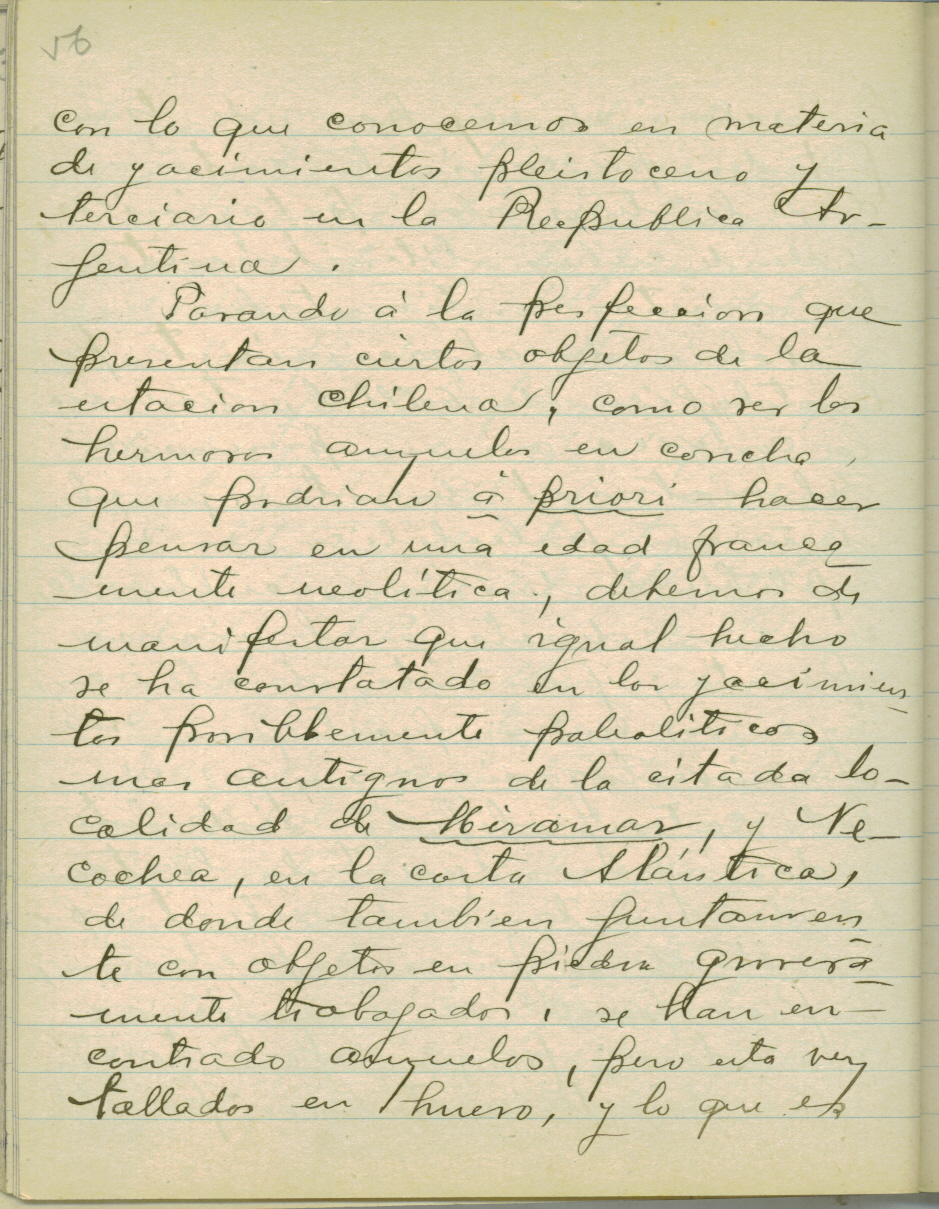 56
con lo que conocemos en materia
de yacimientos pleistoceno y
terciario en la Reepublica Ar-
gentina.
Pasando á la perfeccion que
presentan ciertos objetos de la
estacion chilena, como ser los
hermosos anzuelos en concha,
que podrian à priori hacer
pensar en una edad franca
mente neolítica, debemos de
manifestar que igual hecho
se ha constatado en los yacimien
tos posiblemente paleoliticos
mas antiguos de la citada lo-
calidad de Miramar, y Ne-
cochea, en la costa Atlántica,
de donde tambien juntamen
te con objetos en piedra grosera
mente trabajados, se han en-
contrado anzuelos, pero esta vez
tallados en hueso, y lo que es